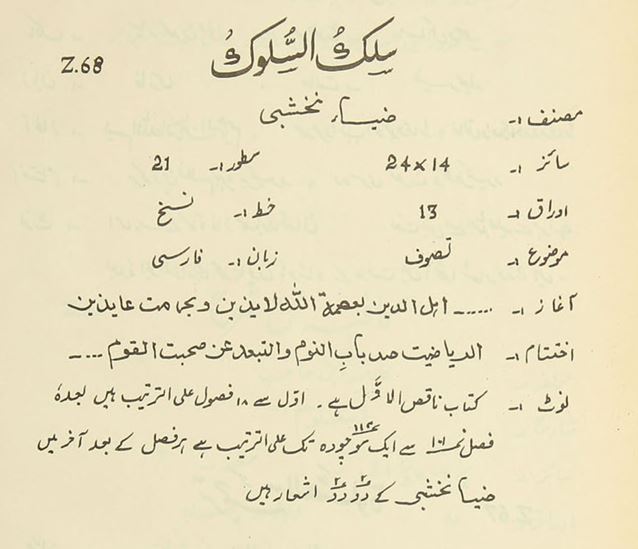 سِلکُ السُّلوکُ
Z.68
مصنف :- ضیاء نخشبی
سائز :- 24x14 سطور :- 21
اوراق :- 13 خط :- نسخ
موضوع :- تصوف زبان :- فارسی
آغاز :- ..... اہل الدین بعصمۃ اللہ لایذین وبحرمت عایذین
اختتام :- الریاضیت صد باب النوم والتبعد عن صحبت القوم ....
نوٹ :- کتاب ناقص الاوّل ہے۔ اوّل سے ۱۸ فصول علی الترتیب ہیں بعدہٗ
فصل نمبر ۱۰۱ سے ایک سو چودہ ۱۱۴ تک علی الترتیب ہے ہر فصل کے بعد آخر میں
ضیاء نخشبی کے دو دو اشعار ہیں